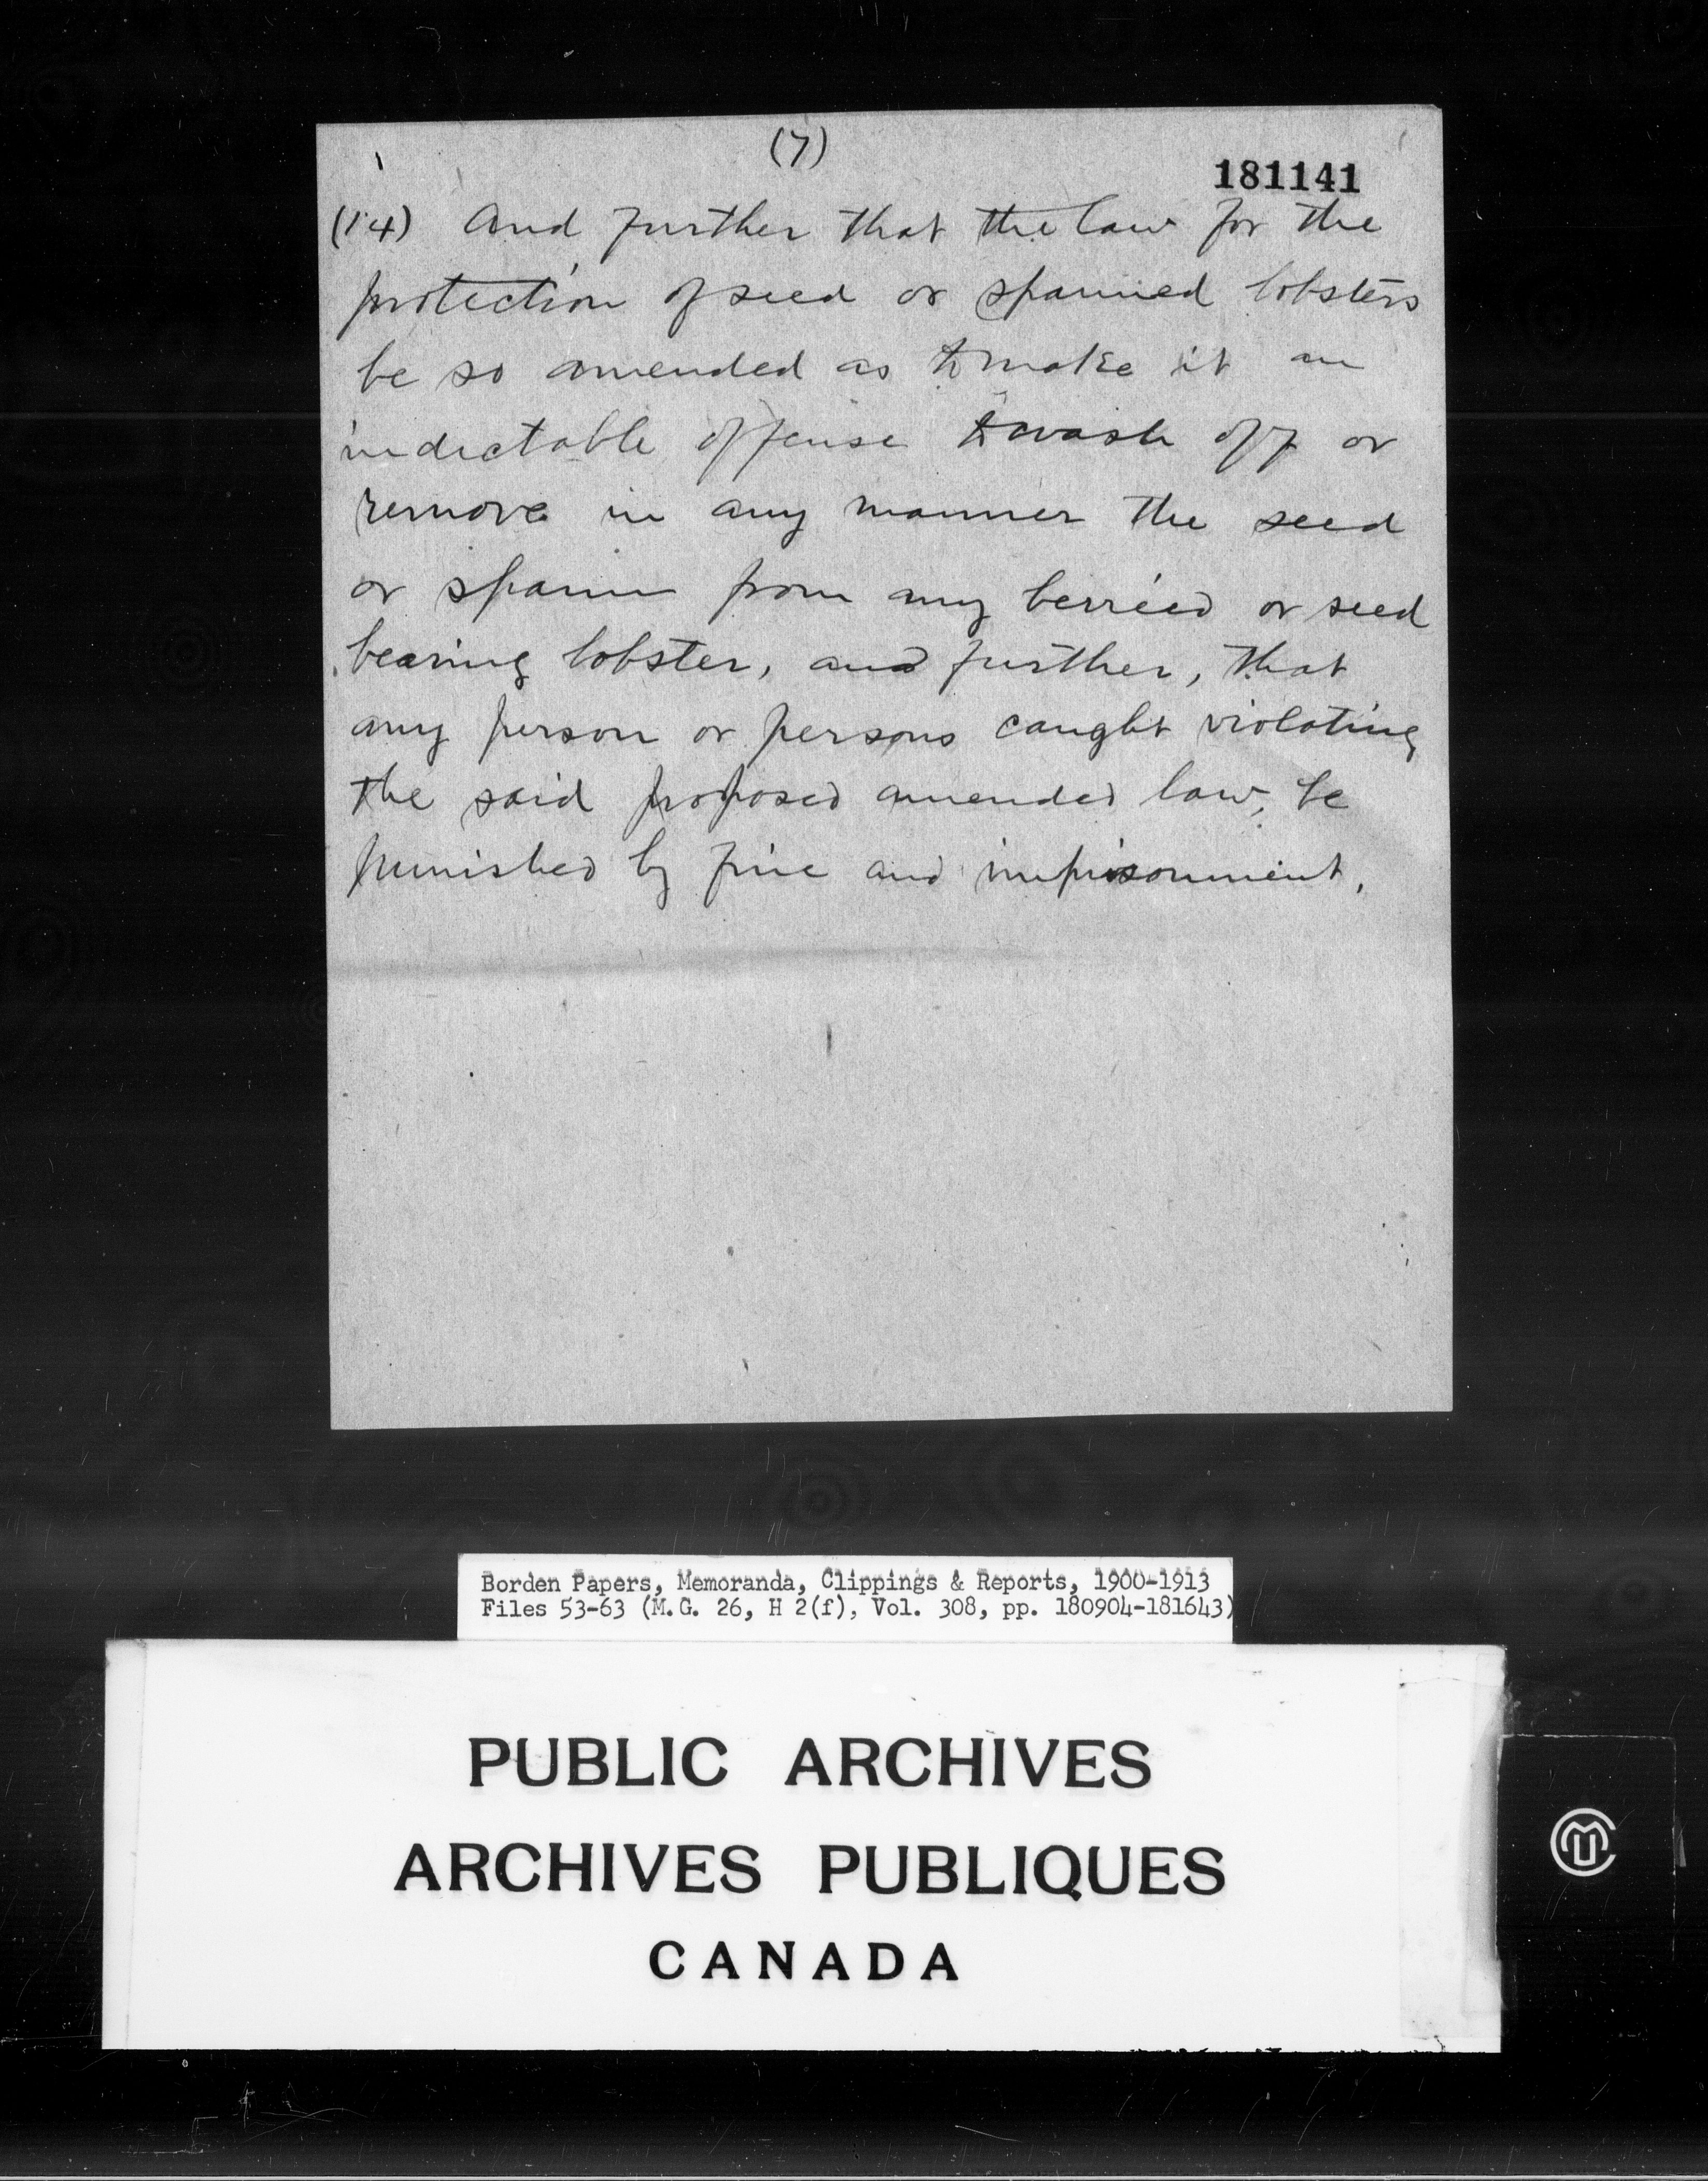 (7)
181141
(14) And further that the law for the
protection of seed or spawned lobsters
be so amended as to make it an
indictable offense to wash off or
remove in any manner the seed
or spawn from any berried or seed
bearing lobster, and further, that
any person or persons caught violating
the said proposed amended law, be
punished by fine and imprisonment.
Borden Papers, Memoranda, Clippings & Reports, 1900-1913
Files 53-63 (M.G. 26, H 2(f), Vol. 308, pp. 180904-181643)
PUBLIC ARCHIVES
ARCHIVES PUBLIQUES
CANADA